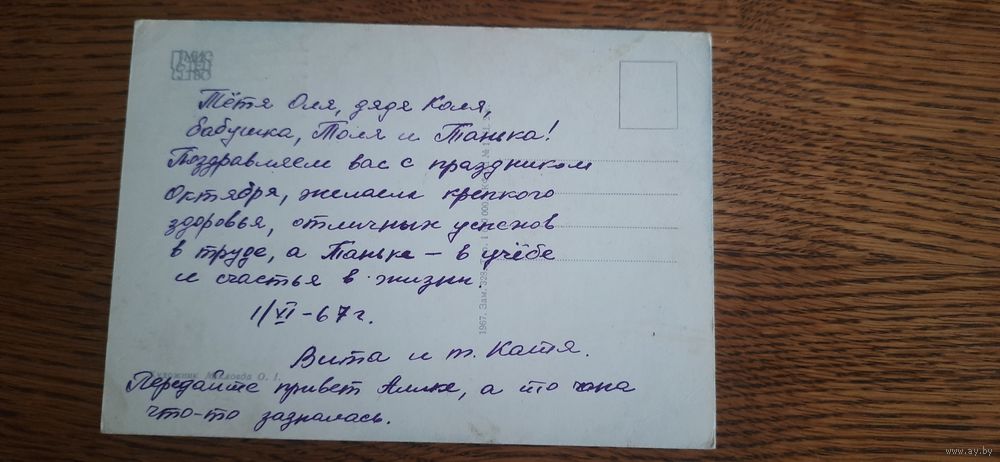 Тётя Оля, дядя Коля,
бабушка, Толя и Танька!
Поздравляем вас с праздником
Октября, желаем крепкого
здоровья, отличных успехов
в труде, а Таньке – в учёбе
и счастья в жизни.
1/XI – 67 г.
Вита и т. Катя.
Передайте привет Алике, а то она
что-то зазналась.
Художник О. І.
1967. Зам. 328.
www.ay.by